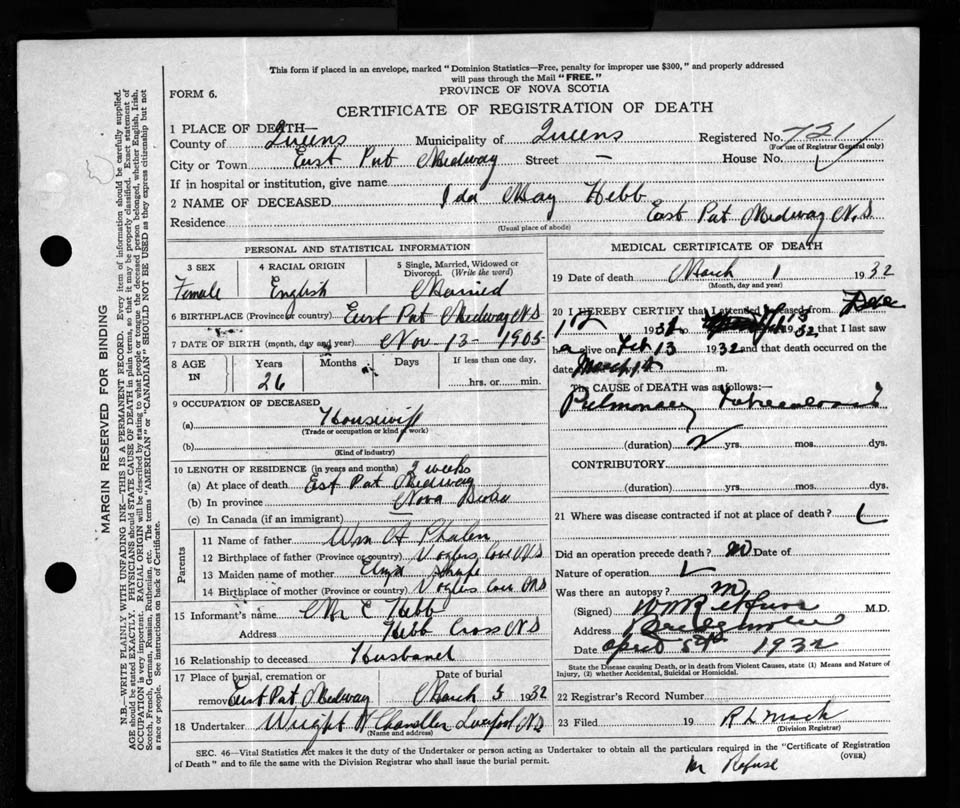 This form if placed in an envelope, marked “Dominion Statistics—Free, penalty for improper use $300,” and properly addressed
will pass through the Mail “FREE.”
PROVINCE OF NOVA SCOTIA
FORM 6.
CERTIFICATE OF REGISTRATION OF DEATH
1 PLACE OF DEATH—
County of Queens Municipality of Queens Registered No. 721
(For use of Registrar General only)
City or Town East Port Medway Street — House No.
If in hospital or institution, give name
2 NAME OF DECEASED Ida May Hebb
Residence East Port Medway N.S
(Usual place of abode)
PERSONAL AND STATISTICAL INFORMATION
3 SEX 4 RACIAL ORIGIN 5 Single, Married, Widowed or
Divorced. (Write the word)
Female English Married
6 BIRTHPLACE (Province or country) East Port Medway N.S
7 DATE OF BIRTH (month, day and year) Nov - 13 - 1905
8 AGE IN Years Months Days If less than one day,
26 hrs. or min.
9 OCCUPATION OF DECEASED
(a) Housewife
(Trade or occupation or kind of work)
(b)
(Kind of industry)
10 LENGTH OF RESIDENCE (in years and months) 2 weeks
(a) At place of death East Port Medway
(b) In province Nova Scotia
(c) In Canada (if an immigrant)
Parents
11 Name of father Wm A Phalen
12 Birthplace of father (Province or country) Voglers Cove N.S
13 Maiden name of mother
14 Birthplace of mother (Province or country) Voglers Cove N.S
15 Informant's name Mr E Hebb
Address Hebb Cross N.S
16 Relationship to deceased Husband
17 Place of burial, cremation or removal Date of burial
East Port Medway March 3 1932
18 Undertaker Wright H Chandler Liverpool N.S
(Name and address)
MEDICAL CERTIFICATE OF DEATH
19 Date of death March 1 1932
(Month, day and year)
20 I HEREBY CERTIFY that I attended deceased from Dec
1st 1931 to 1932 that I last saw
h alive on Feb 13 1932 and that death occurred on the
date March 1st m.
The CAUSE of DEATH was as follows:—
Pulmonary Tuberculosis
(duration) 2 yrs. mos. dys.
CONTRIBUTORY
(duration) yrs. mos. dys.
21 Where was disease contracted if not at place of death?
Did an operation precede death? no Date of
Nature of operation
Was there an autopsy? no
(Signed) M.D.
Address Bridgewater
Date April 5th 1932
State the Disease causing Death, or in death from Violent Causes, state (1) Means and Nature of
Injury, (2) whether Accidental, Suicidal or Homicidal.
22 Registrar's Record Number
23 Filed 19 R L Mack
(Division Registrar)
SEC. 46—Vital Statistics Act makes it the duty of the Undertaker or person acting as Undertaker to obtain all the particulars required in the “Certificate of Registration
of Death” and to file the same with the Division Registrar who shall issue the burial permit.
(OVER)
MARGIN RESERVED FOR BINDING
N.B.—WRITE PLAINLY WITH UNFADING INK—THIS IS A PERMANENT RECORD. Every item of information should be carefully supplied.
AGE should be stated EXACTLY. PHYSICIANS should STATE CAUSE OF DEATH in plain terms, so that it may be properly classified. Exact statement of
OCCUPATION is very important. RACIAL ORIGIN will be described by stating to what people or tongue the deceased person belonged, whether English, Irish,
Scotch, French, German, Russian, Ruthenian, etc. The terms “AMERICAN” or “CANADIAN” SHOULD NOT BE USED as they express citizenship but not
a race or people. See instructions on back of Certificate.